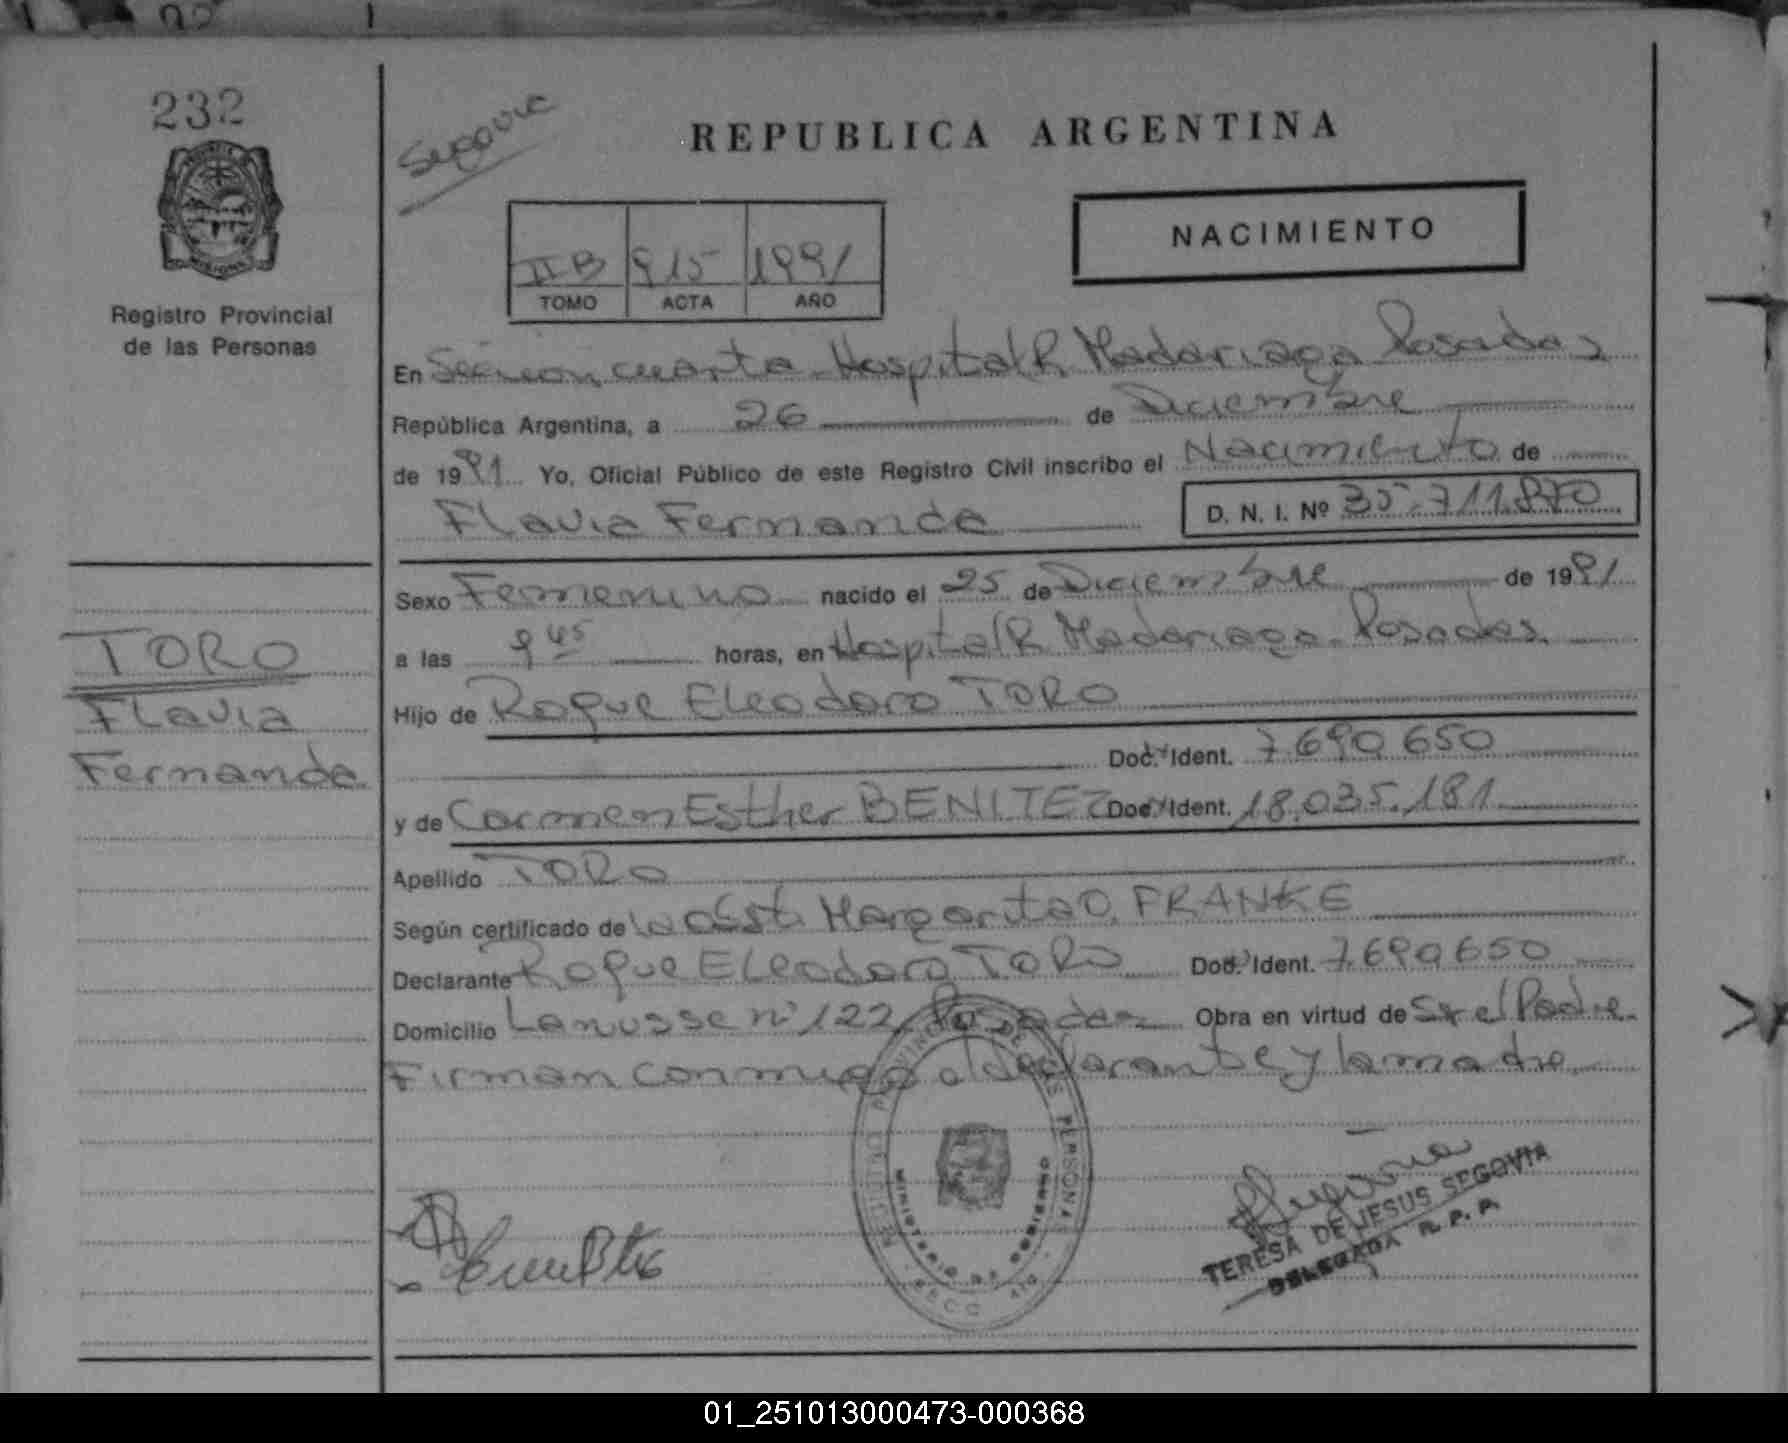 232
Segovia
REPUBLICA ARGENTINA
NACIMIENTO
II B 915 1991
TOMO ACTA AÑO
Registro Provincial
de las Personas
En Sección cuarta - Hospital R. Madariaga Posadas
República Argentina, a 26 de Diciembre
de 1991. Yo, Oficial Público de este Registro Civil inscribo el Nacimiento de
Flavia Fernanda D. N. I. Nº 35.711.870
Sexo Femenino nacido el 25 de Diciembre de 1991
a las 9 45 horas, en Hospital R. Madariaga - Posadas
Hijo de Roque Eleodoro TORO
Doc. Ident. 7.690.650
y de Carmen Esther BENITEZ Doc. Ident. 18.035.181
Apellido TORO
Según certificado de la Obst. Margarita O. FRANKE
Declarante Roque Eleodoro TORO Doc. Ident. 7.690.650
Domicilio Lanusse nº 122 Posadas Obra en virtud de Ser el Padre
Firman conmigo el declarante y la madre
TORO
Flavia
Fernanda
REGISTRO PROVINCIAL DE LAS PERSONAS
MINISTERIO DE GOBIERNO
TERESA DE JESUS SEGOVIA
DELEGADA R. P. P.
01_251013000473-000368